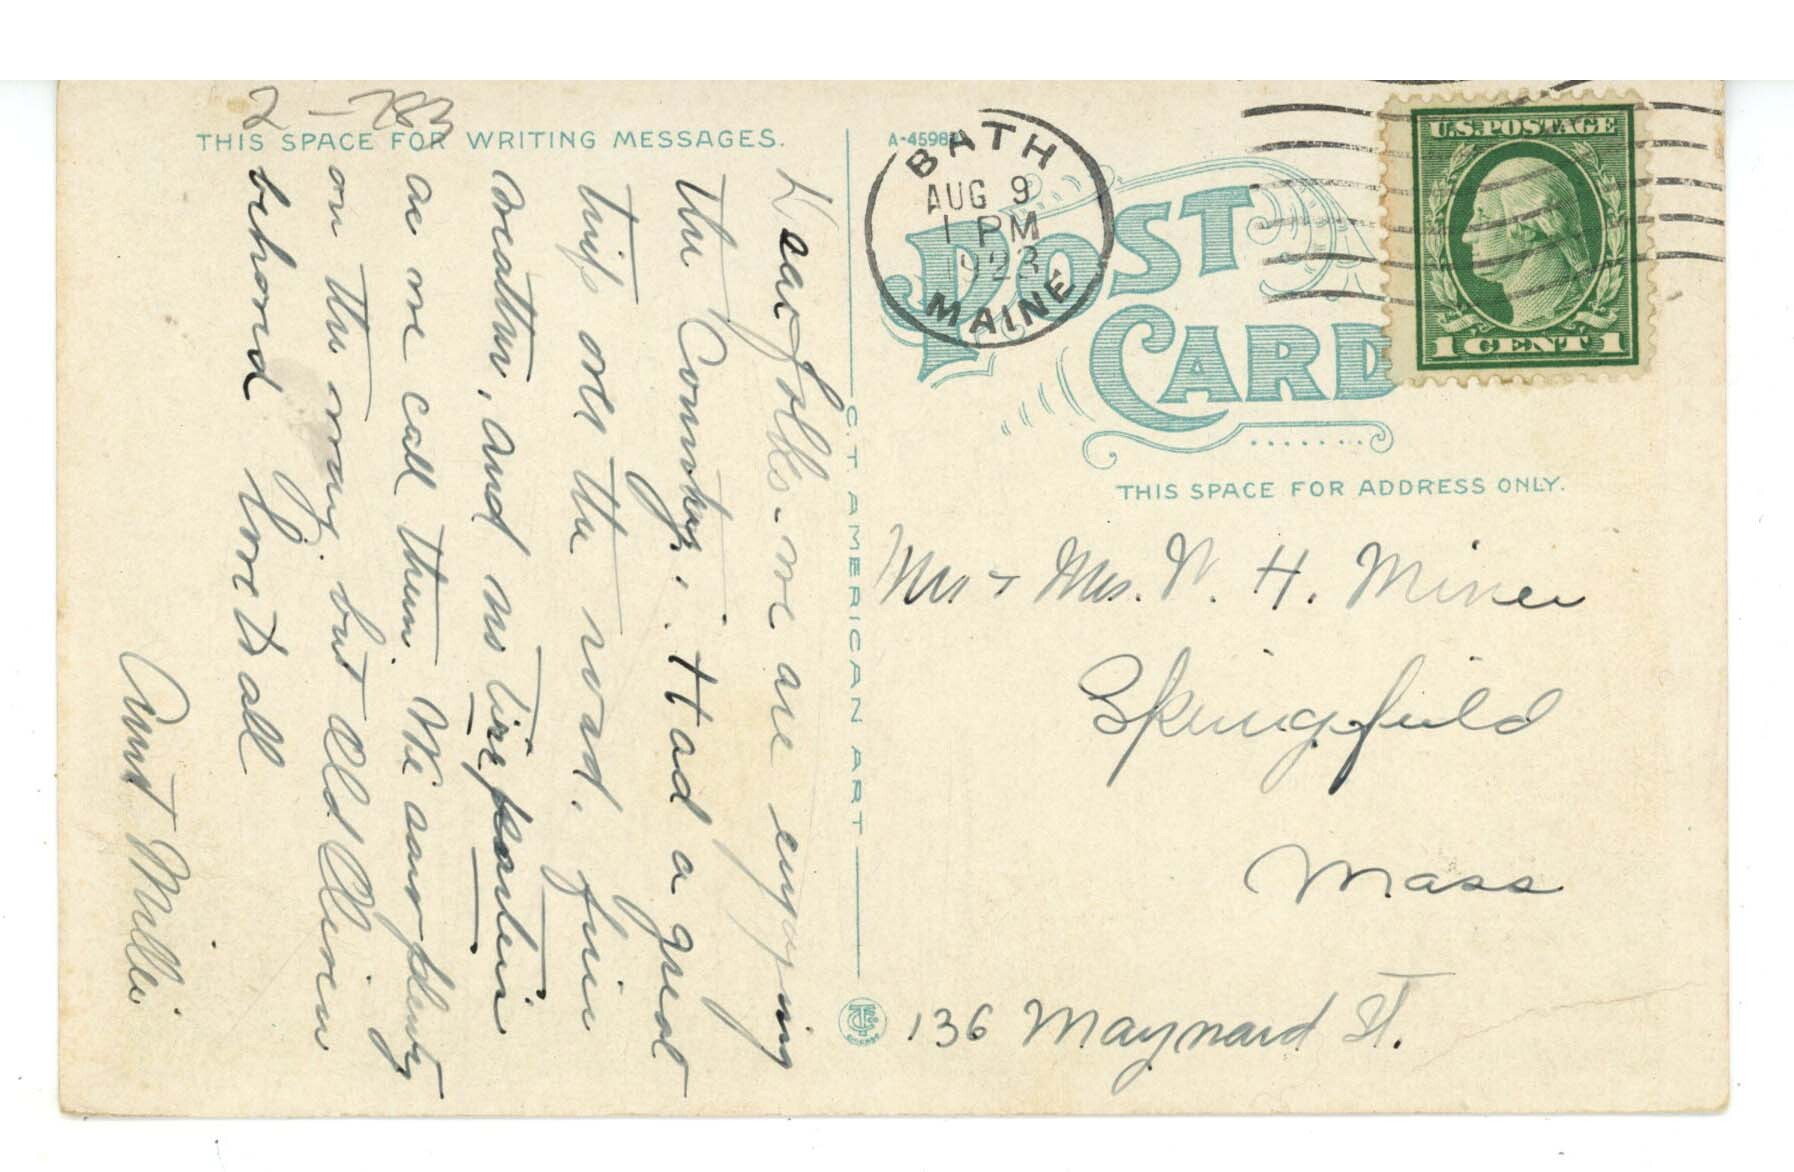 2-783
THIS SPACE FOR WRITING MESSAGES.
Dear folks - we are enjoying
the Country. Had a great
trip over the road, fine
weather, and no tire
as we call them. We saw plenty
on the way, but
behond love to all
Aunt Millie
C.T. AMERICAN ART
A-4598
BATH
AUG 9
1 PM
1923
MAINE
POST
CARD
U.S. POSTAGE
1 CENT 1
THIS SPACE FOR ADDRESS ONLY.
Mr + Mrs. W. H. Miner
Springfield
Mass
136 Maynard St.